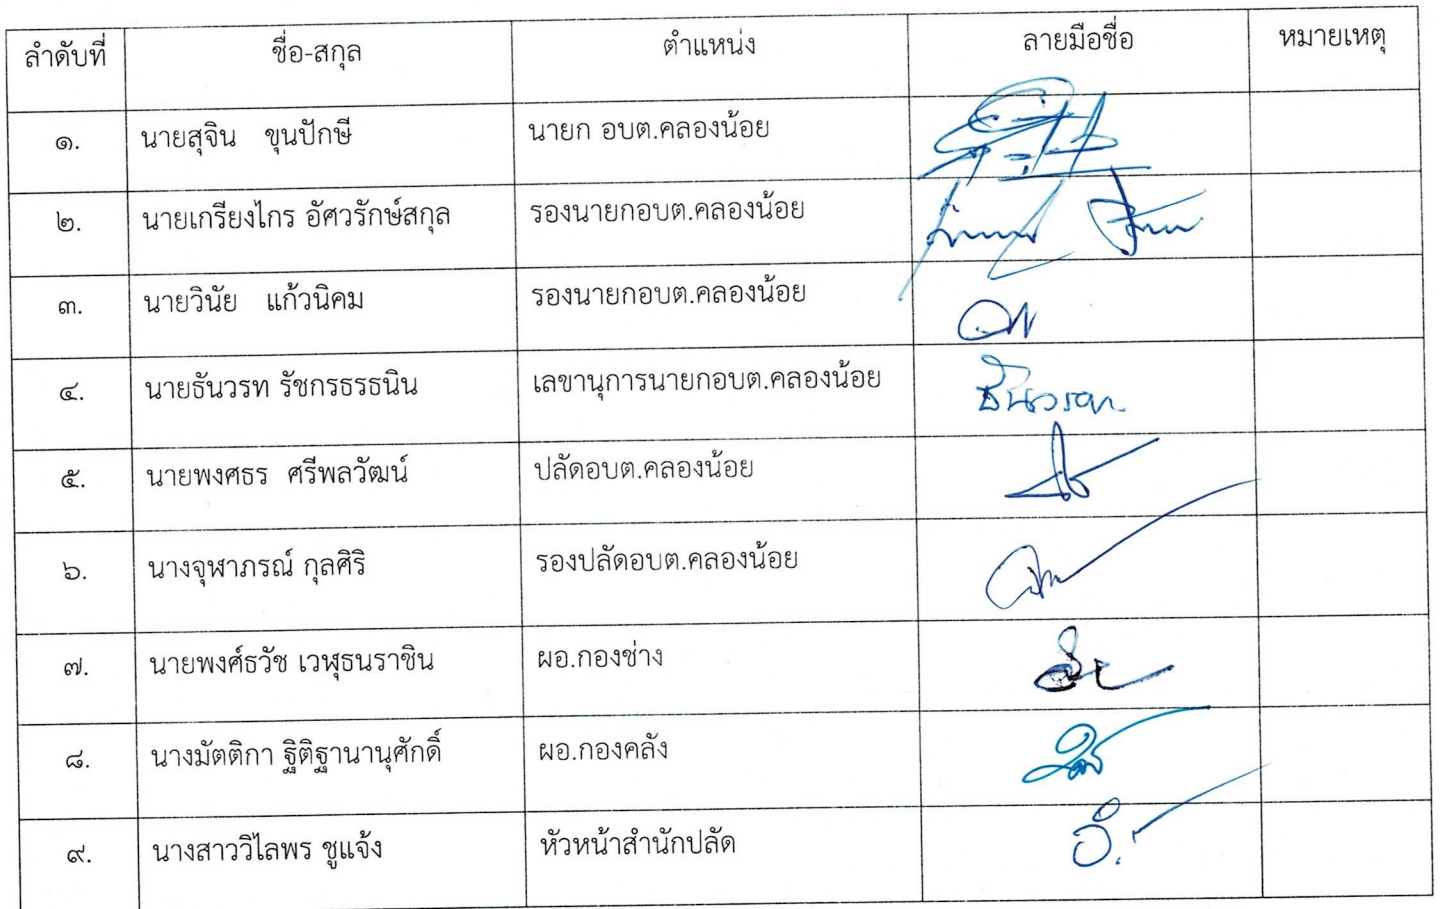 ลำดับที่ ชื่อ-สกุล ตำแหน่ง ลายมือชื่อ หมายเหตุ
๑. นายสุจิน ขุนปักษี นายก อบต.คลองน้อย
๒. นายเกรียงไกร อัศวรักษ์สกุล รองนายกอบต.คลองน้อย
๓. นายวินัย แก้วนิคม รองนายกอบต.คลองน้อย
๔. นายธันวรท รัชกรธรธนิน เลขานุการนายกอบต.คลองน้อย ธันวรท
๕. นายพงศธร ศรีพลวัฒน์ ปลัดอบต.คลองน้อย
๖. นางจุฬาภรณ์ กุลศิริ รองปลัดอบต.คลองน้อย
๗. นายพงศ์ธวัช เวฬุธนราชิน ผอ.กองช่าง
๘. นางมัตติกา ฐิติฐานานุศักดิ์ ผอ.กองคลัง
๙. นางสาววิไลพร ชูแจ้ง หัวหน้าสำนักปลัด